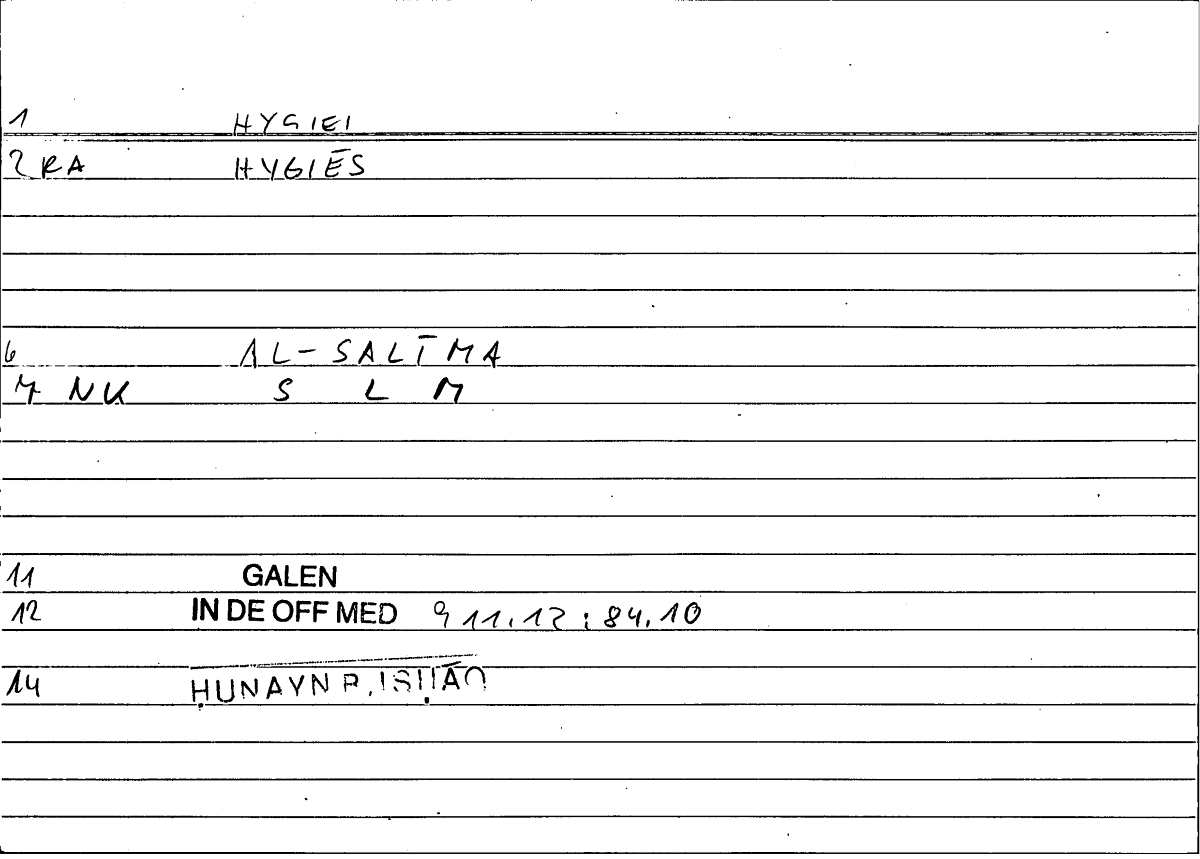 1 HYGIEI
2 RA HYGIĒS
6 AL-SALĪMA
7 NK S L M
11 GALEN
12 IN DE OFF MED 9 11.12 : 84.10
14 ḤUNAYN B. ISḤĀQ